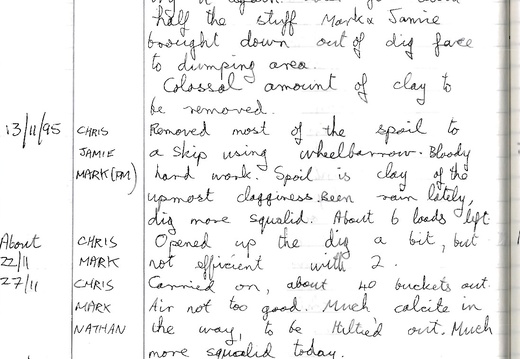 half the stuff Mark & Jamie
brought down out of dig face
to dumping area.
Colossal amount of clay to
be removed.
13/11/95 CHRIS Removed most of the spoil to
JAMIE a skip using wheelbarrow. Bloody
MARK (PM) hard work. Spoil is clay of the
upmost clagginess. Been rain lately,
dig more squalid. About 6 loads left
About CHRIS Opened up the dig a bit, but
22/11 MARK not efficient with 2.
27/11 CHRIS Carried on, about 40 buckets out.
MARK Air not too good. Much calcite in
NATHAN the way, to be Hiltied out. Much
more squalid today.